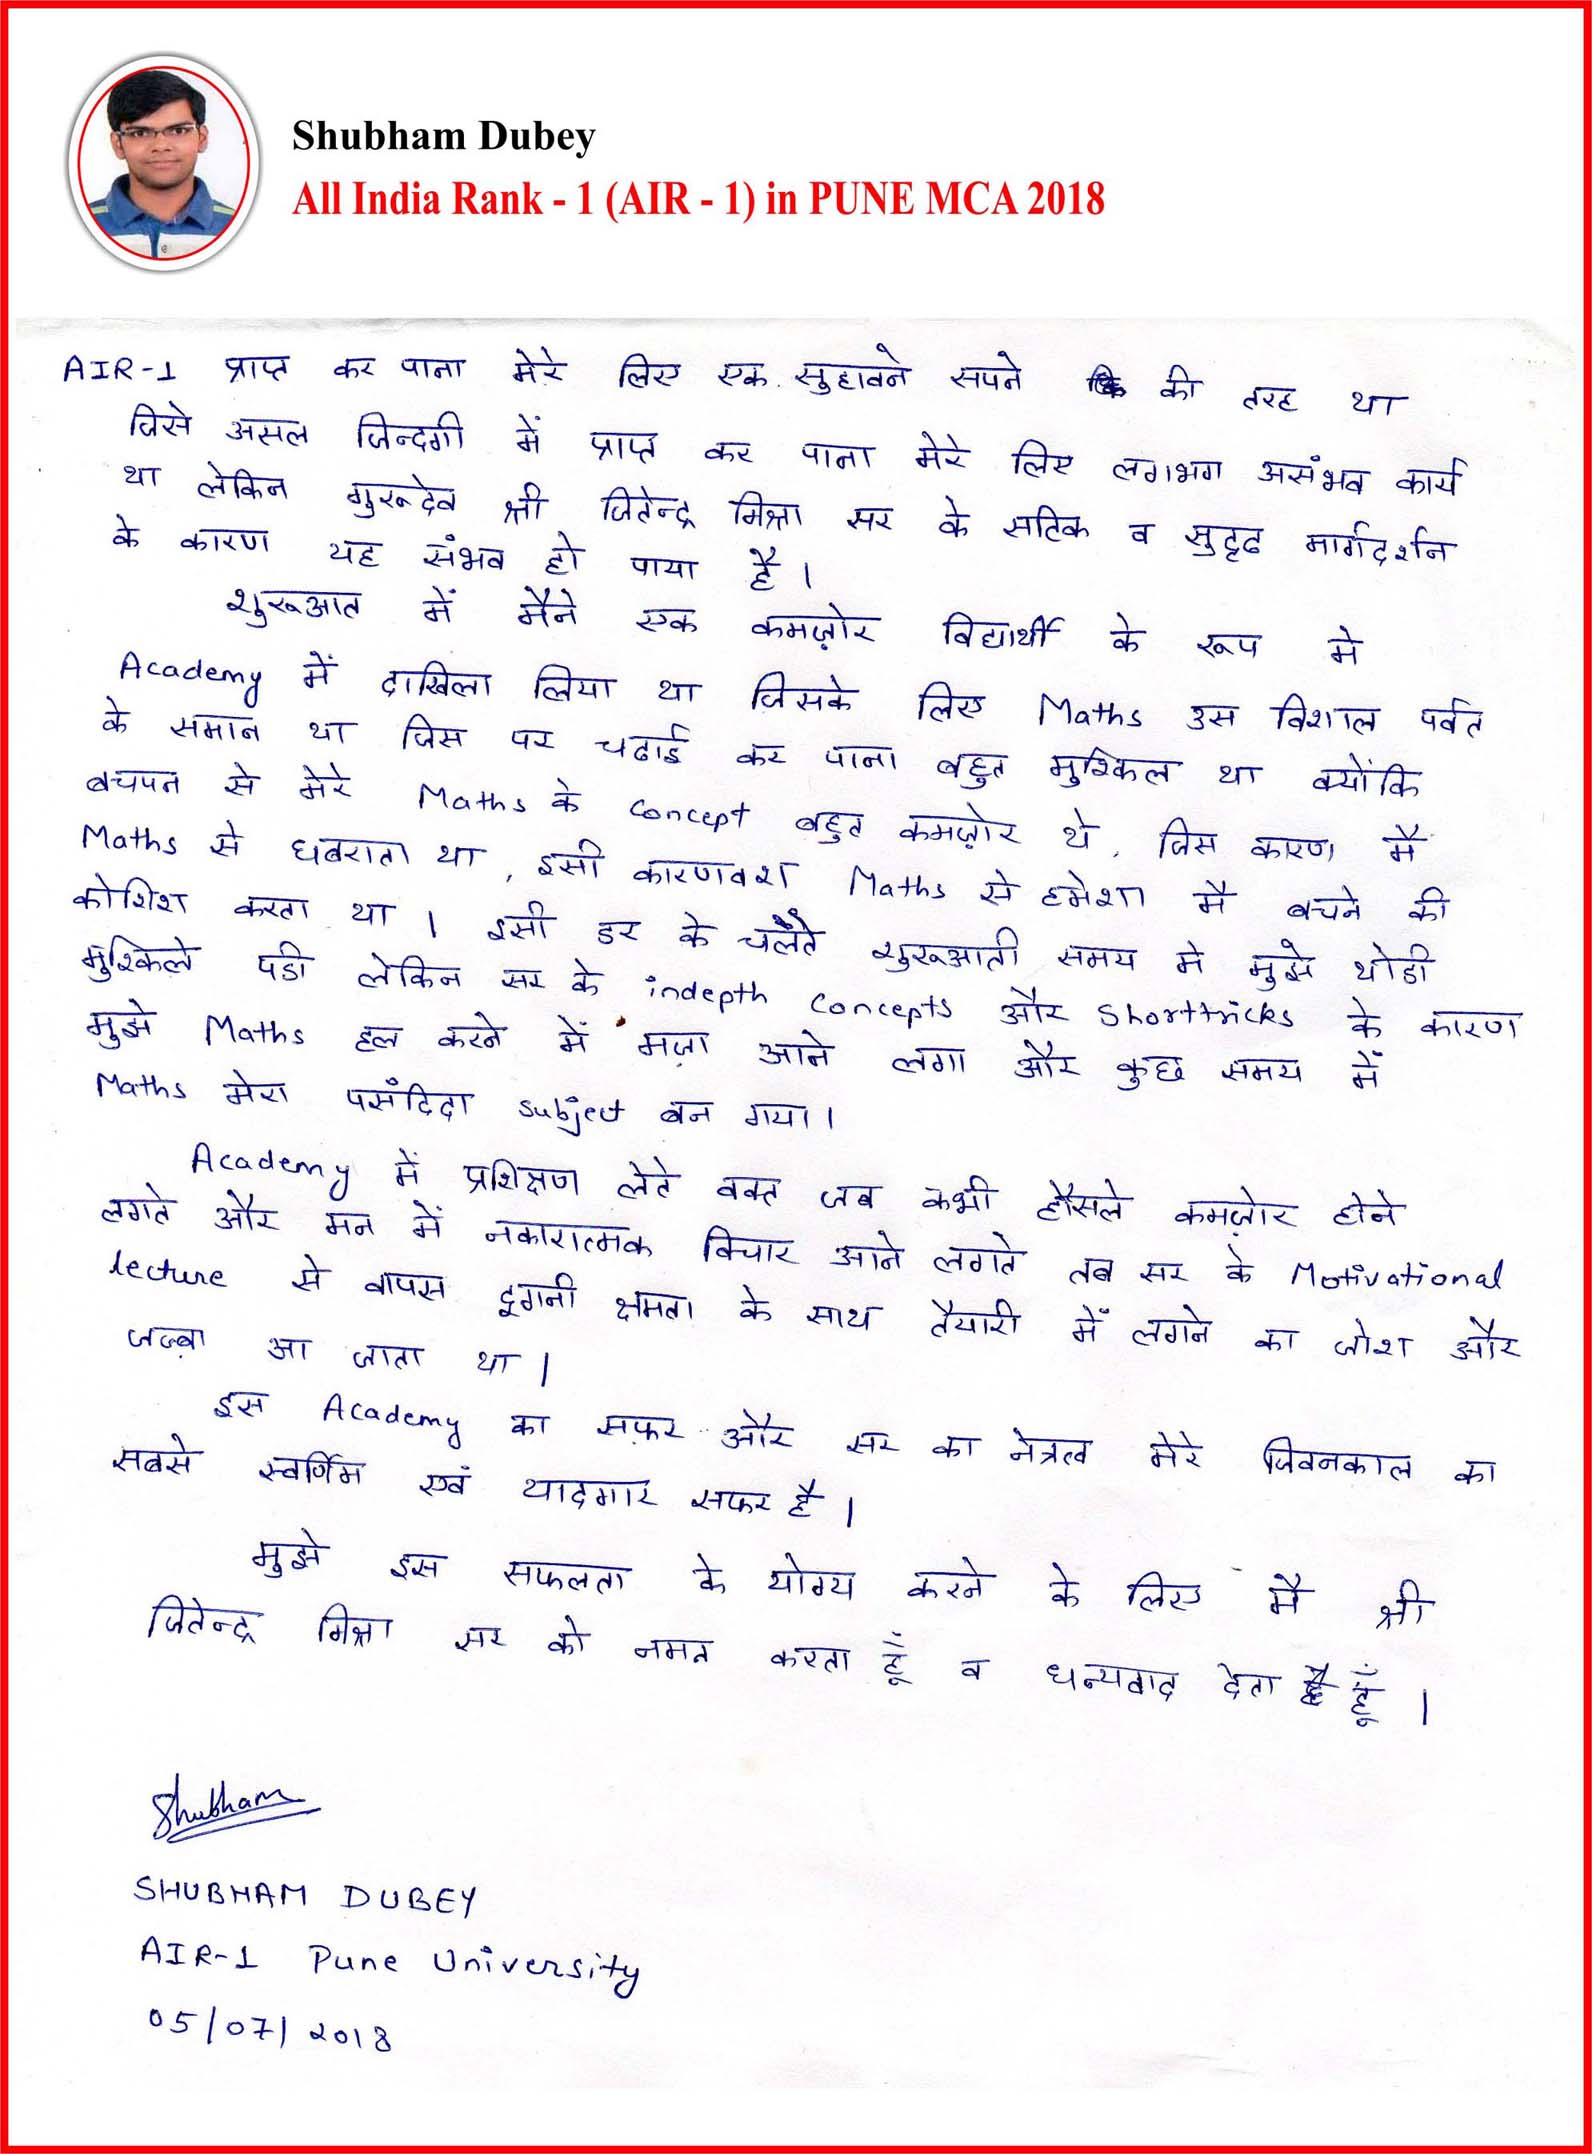 Shubham Dubey
All India Rank - 1 (AIR - 1) in PUNE MCA 2018
AIR-1 प्राप्त कर पाना मेरे लिए एक सुहावने सपने की तरह था
जिसे असल जिन्दगी में प्राप्त कर पाना मेरे लिए लगभग असंभव कार्य
था लेकिन गुरूदेव श्री जितेन्द्र मिश्रा सर के सटिक व सुदृढ मार्गदर्शन
के कारण यह संभव हो पाया है ।
शुरूआत में मैने एक कमज़ोर विद्यार्थी के रूप मे
Academy में दाखिला लिया था जिसके लिए Maths उस विशाल पर्वत
के समान था जिस पर चढाई कर पाना बहुत मुश्किल था क्योंकि
बचपन से मेरे Maths के concept बहुत कमज़ोर थे, जिस कारण मै
Maths से घबराता था, इसी कारणवश Maths से हमेशा मै बचने की
कोशिश करता था । इसी डर के चलते शुरूआती समय मे मुझे थोडी
मुश्किले पडी लेकिन सर के indepth concepts और shorttricks के कारण
मुझे Maths हल करने में मज़ा आने लगा और कुछ समय में
Maths मेरा पसंदिदा subject बन गया।
Academy में प्रशिक्षण लेते वक्त जब कभी हौसले कमज़ोर होने
लगते और मन में नकारात्मक विचार आने लगते तब सर के Motivational
lecture से वापस दूगनी क्षमता के साथ तैयारी में लगने का जोश और
जज़्बा आ जाता था ।
इस Academy का सफ़र और सर का नेत्रत्व मेरे जिवनकाल का
सबसे स्वर्णिम एवं यादगार सफर है ।
मुझे इस सफलता के योग्य करने के लिए मै श्री
जितेन्द्र मिश्रा सर को नमन करता हूँ व धन्यवाद देता हूँ ।
Shubham
SHUBHAM DUBEY
AIR-1 Pune University
05/07/2018